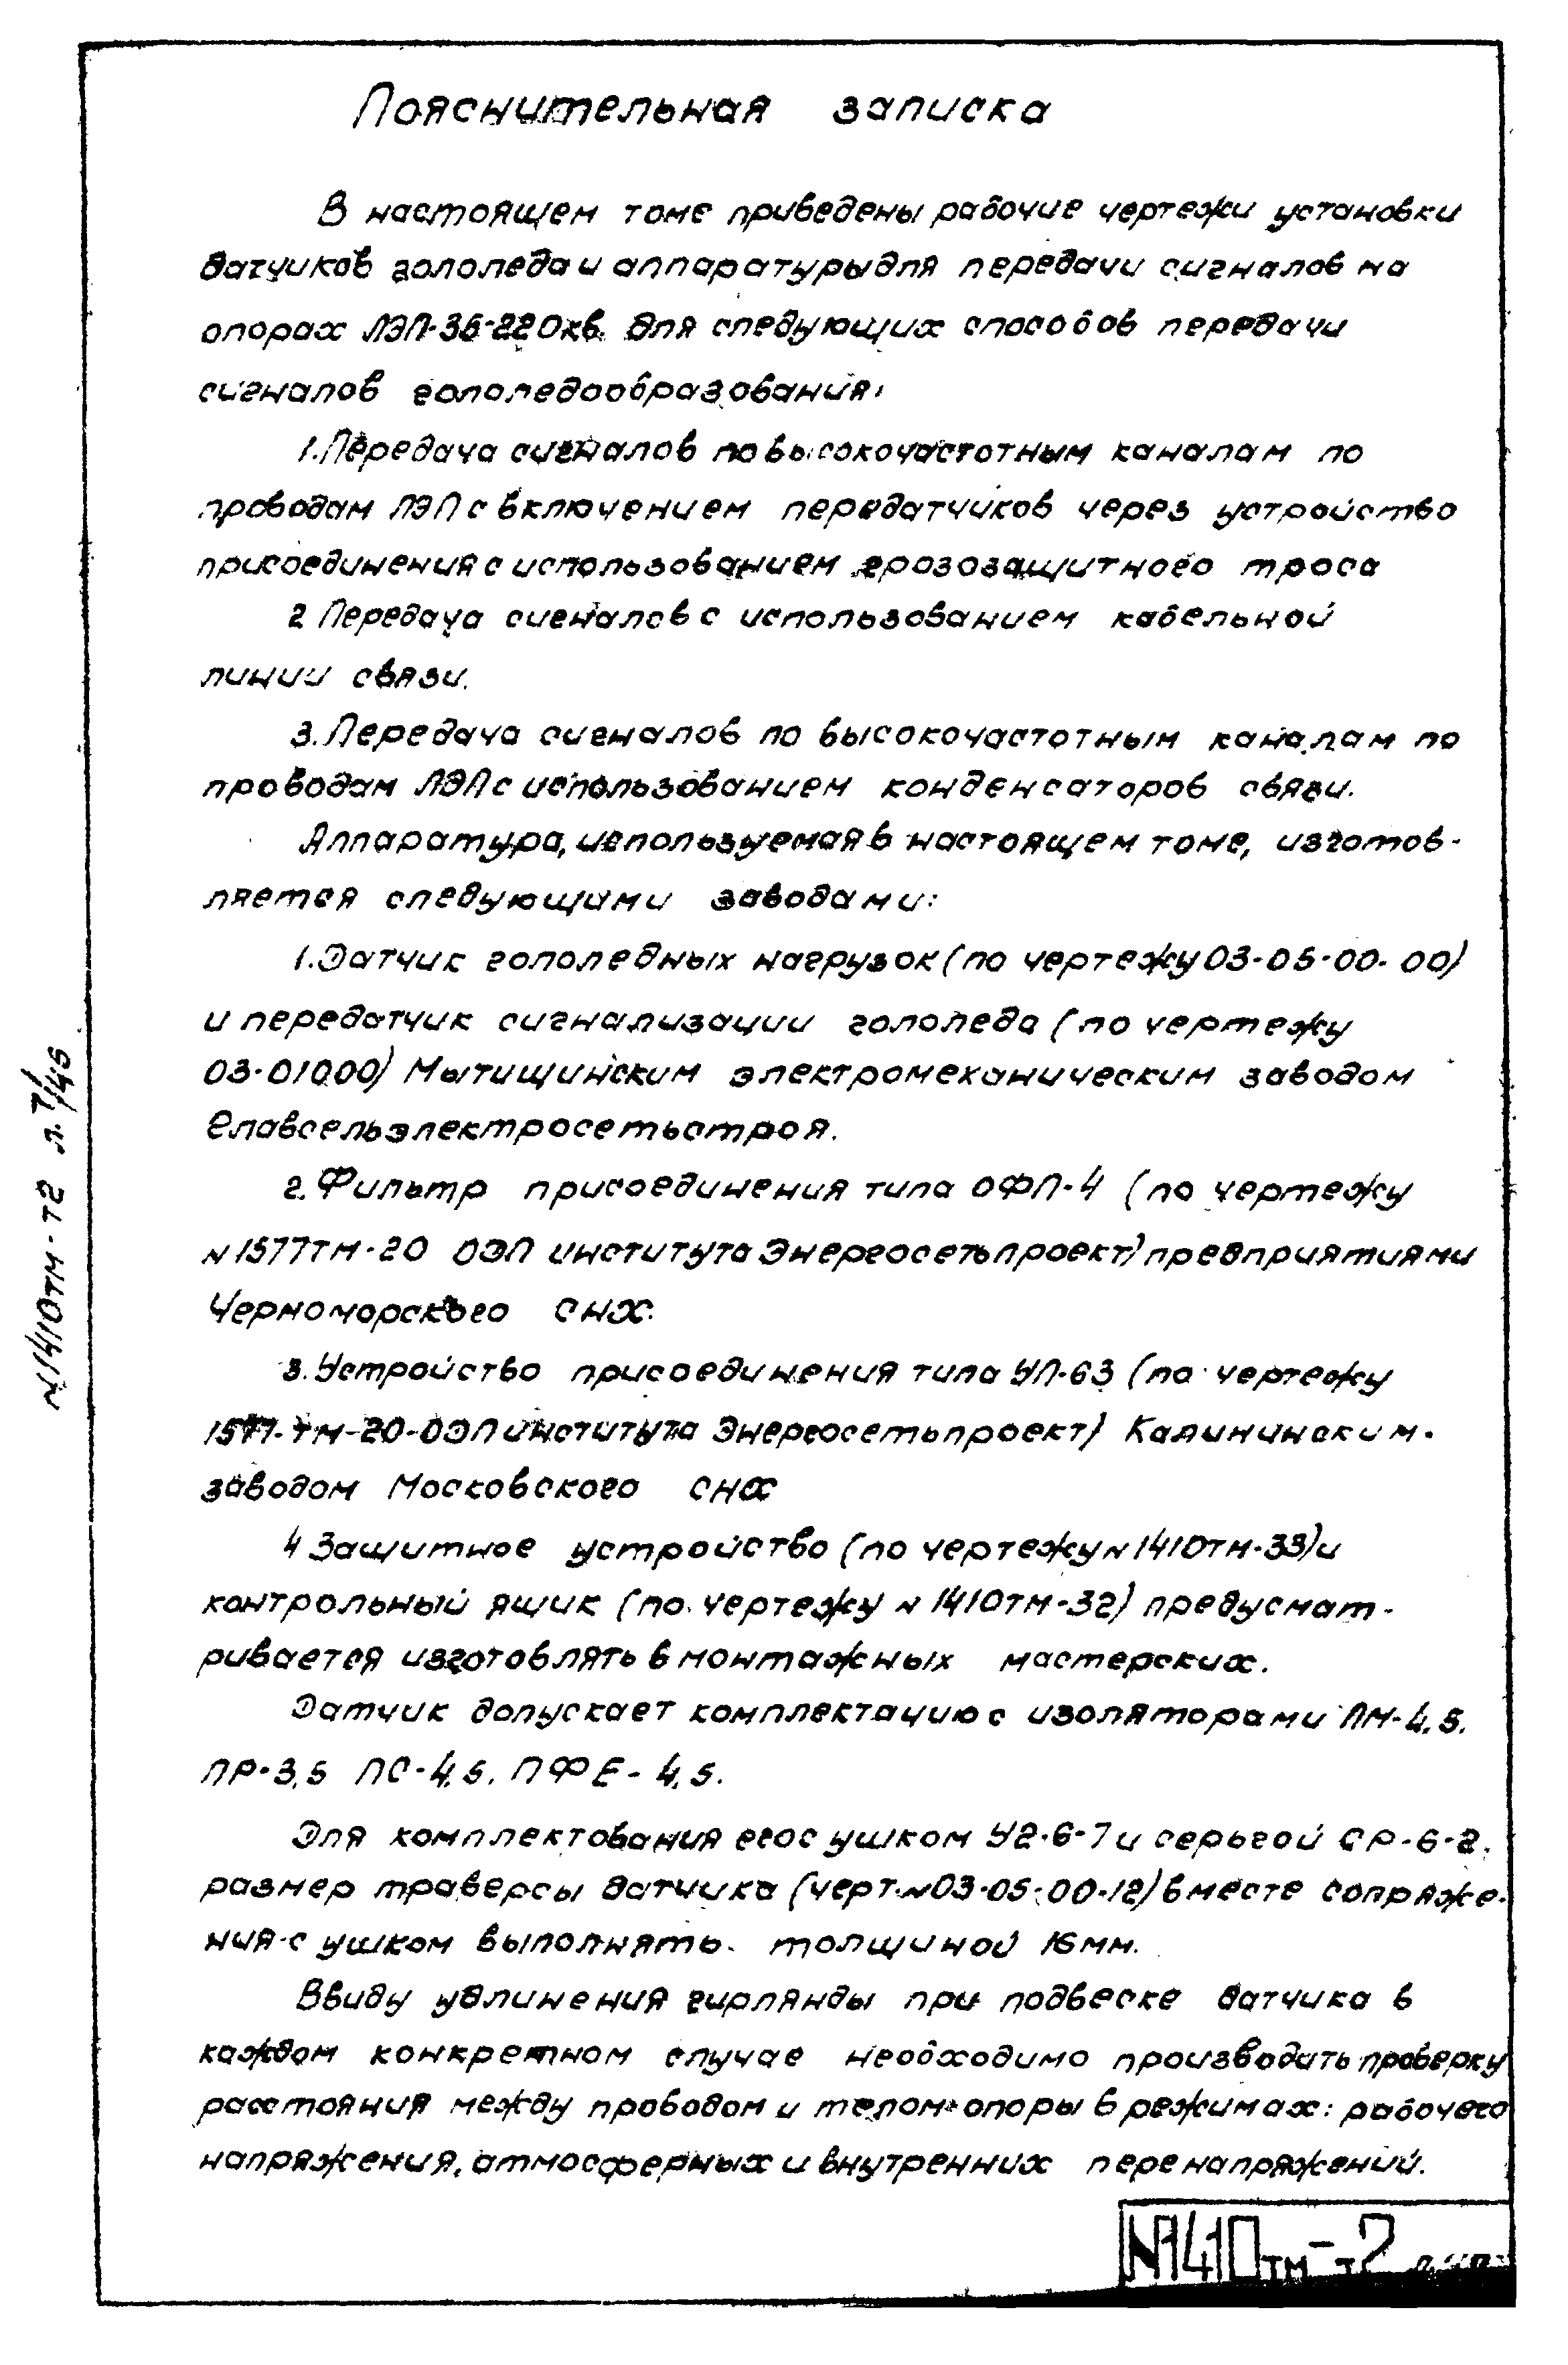 Пояснительная записка
В настоящем томе приведены рабочие чертежи установки
датчиков гололеда и аппаратуры для передачи сигналов на
опорах ЛЭП-35-220кв. для следующих способов передачи
сигналов гололедообразования:
1. Передача сигналов по высокочастотным каналам по
проводам ЛЭП с включением передатчиков через устройство
присоединения с использованием грозозащитного троса
2 Передача сигналов с использованием кабельной
линии связи.
3. Передача сигналов по высокочастотным каналам по
проводам ЛЭП с использованием конденсаторов связи.
Аппаратура, используемая в настоящем томе, изготов-
ляется следующими заводами:
1. Датчик гололедных нагрузок (по чертежу 03-05-00-00)
и передатчик сигнализации гололеда (по чертежу
03-01000) Мытищинским электромеханическим заводом
Главсельэлектросетьстроя.
2. Фильтр присоединения типа ОФП-4 (по чертежу
N1577ТМ-20 ОЭП института Энергосетьпроект) предприятиями
Черноморского СНХ.
3. Устройство присоединения типа УП-63 (по чертежу
1577-ТМ-20-ОЭП института Энергосетьпроект) Калининским
заводом Московского СНХ
4 Защитное устройство (по чертежу N1410ТМ-33) и
контрольный ящик (по чертежу N 1410ТМ-32) предусмат-
ривается изготовлять в монтажных мастерских.
Датчик допускает комплектацию с изоляторами ПМ-4,5.
ПР-3,5 ПС-4,5. ПФЕ-4,5.
Для комплектования его с ушком У2-6-7 и серьгой СР-6-2.
размер траверсы датчика (черт. N03-05-00-12) в месте сопряже-
ния с ушком выполнять толщиной 16мм.
Ввиду удлинения гирлянды при подвеске датчика в
каждом конкретном случае необходимо производить проверку
расстояния между проводом и телом опоры в режимах: рабочего
напряжения, атмосферных и внутренних перенапряжений.
N1410ТМ-Т2 л. 7/45
N1410ТМ-Т2